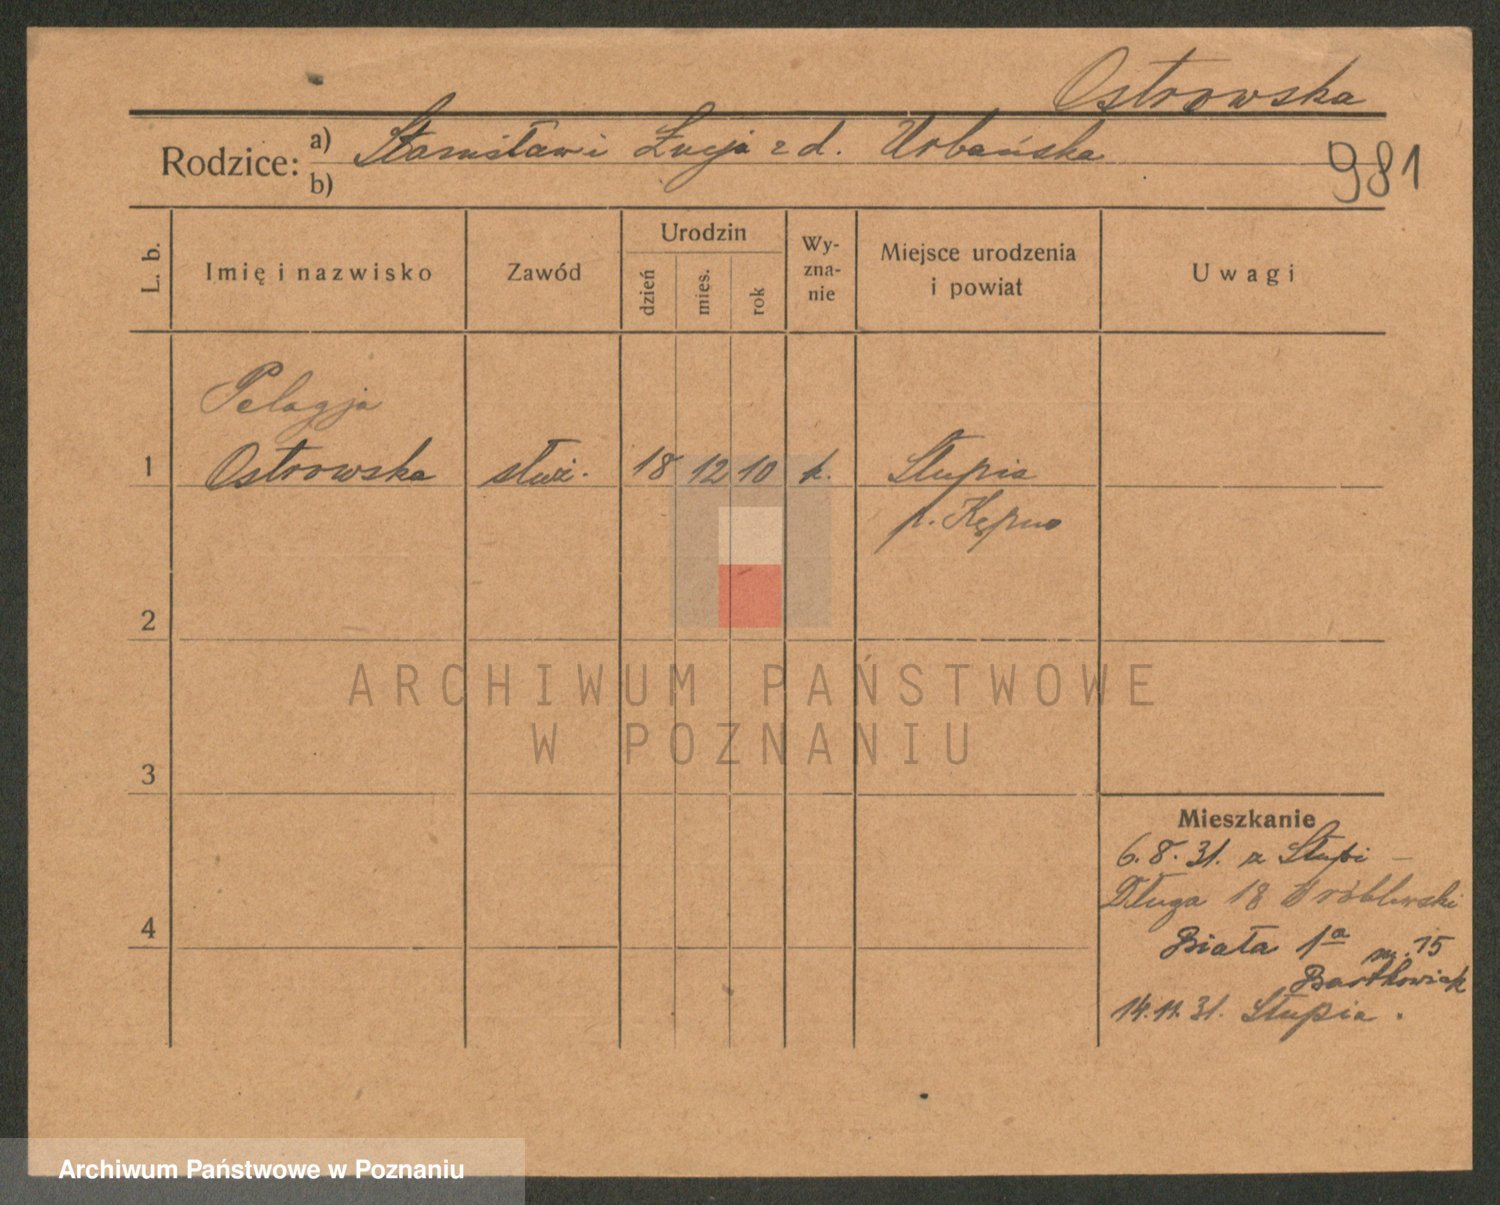 Ostrowska
Rodzice: a) Stanisław i Łucja z d. Urbańska
b)
981
L. b.
Imię i nazwisko
Zawód
Urodzin
dzień
mies.
rok
Wy-
zna-
nie
Miejsce urodzenia
i powiat
Uwagi
Pelagja
1 Ostrowska służ. 18 12 10 k. Słupia
p. Kępno
2
3
4
Mieszkanie
6.8.31. z Słupi –
Długa 18 Wróblewski
Biała 1a m. 15
Bartkowiak
14.11.31. Słupia.
ARCHIWUM PAŃSTWOWE
W POZNANIU
Archiwum Państwowe w Poznaniu